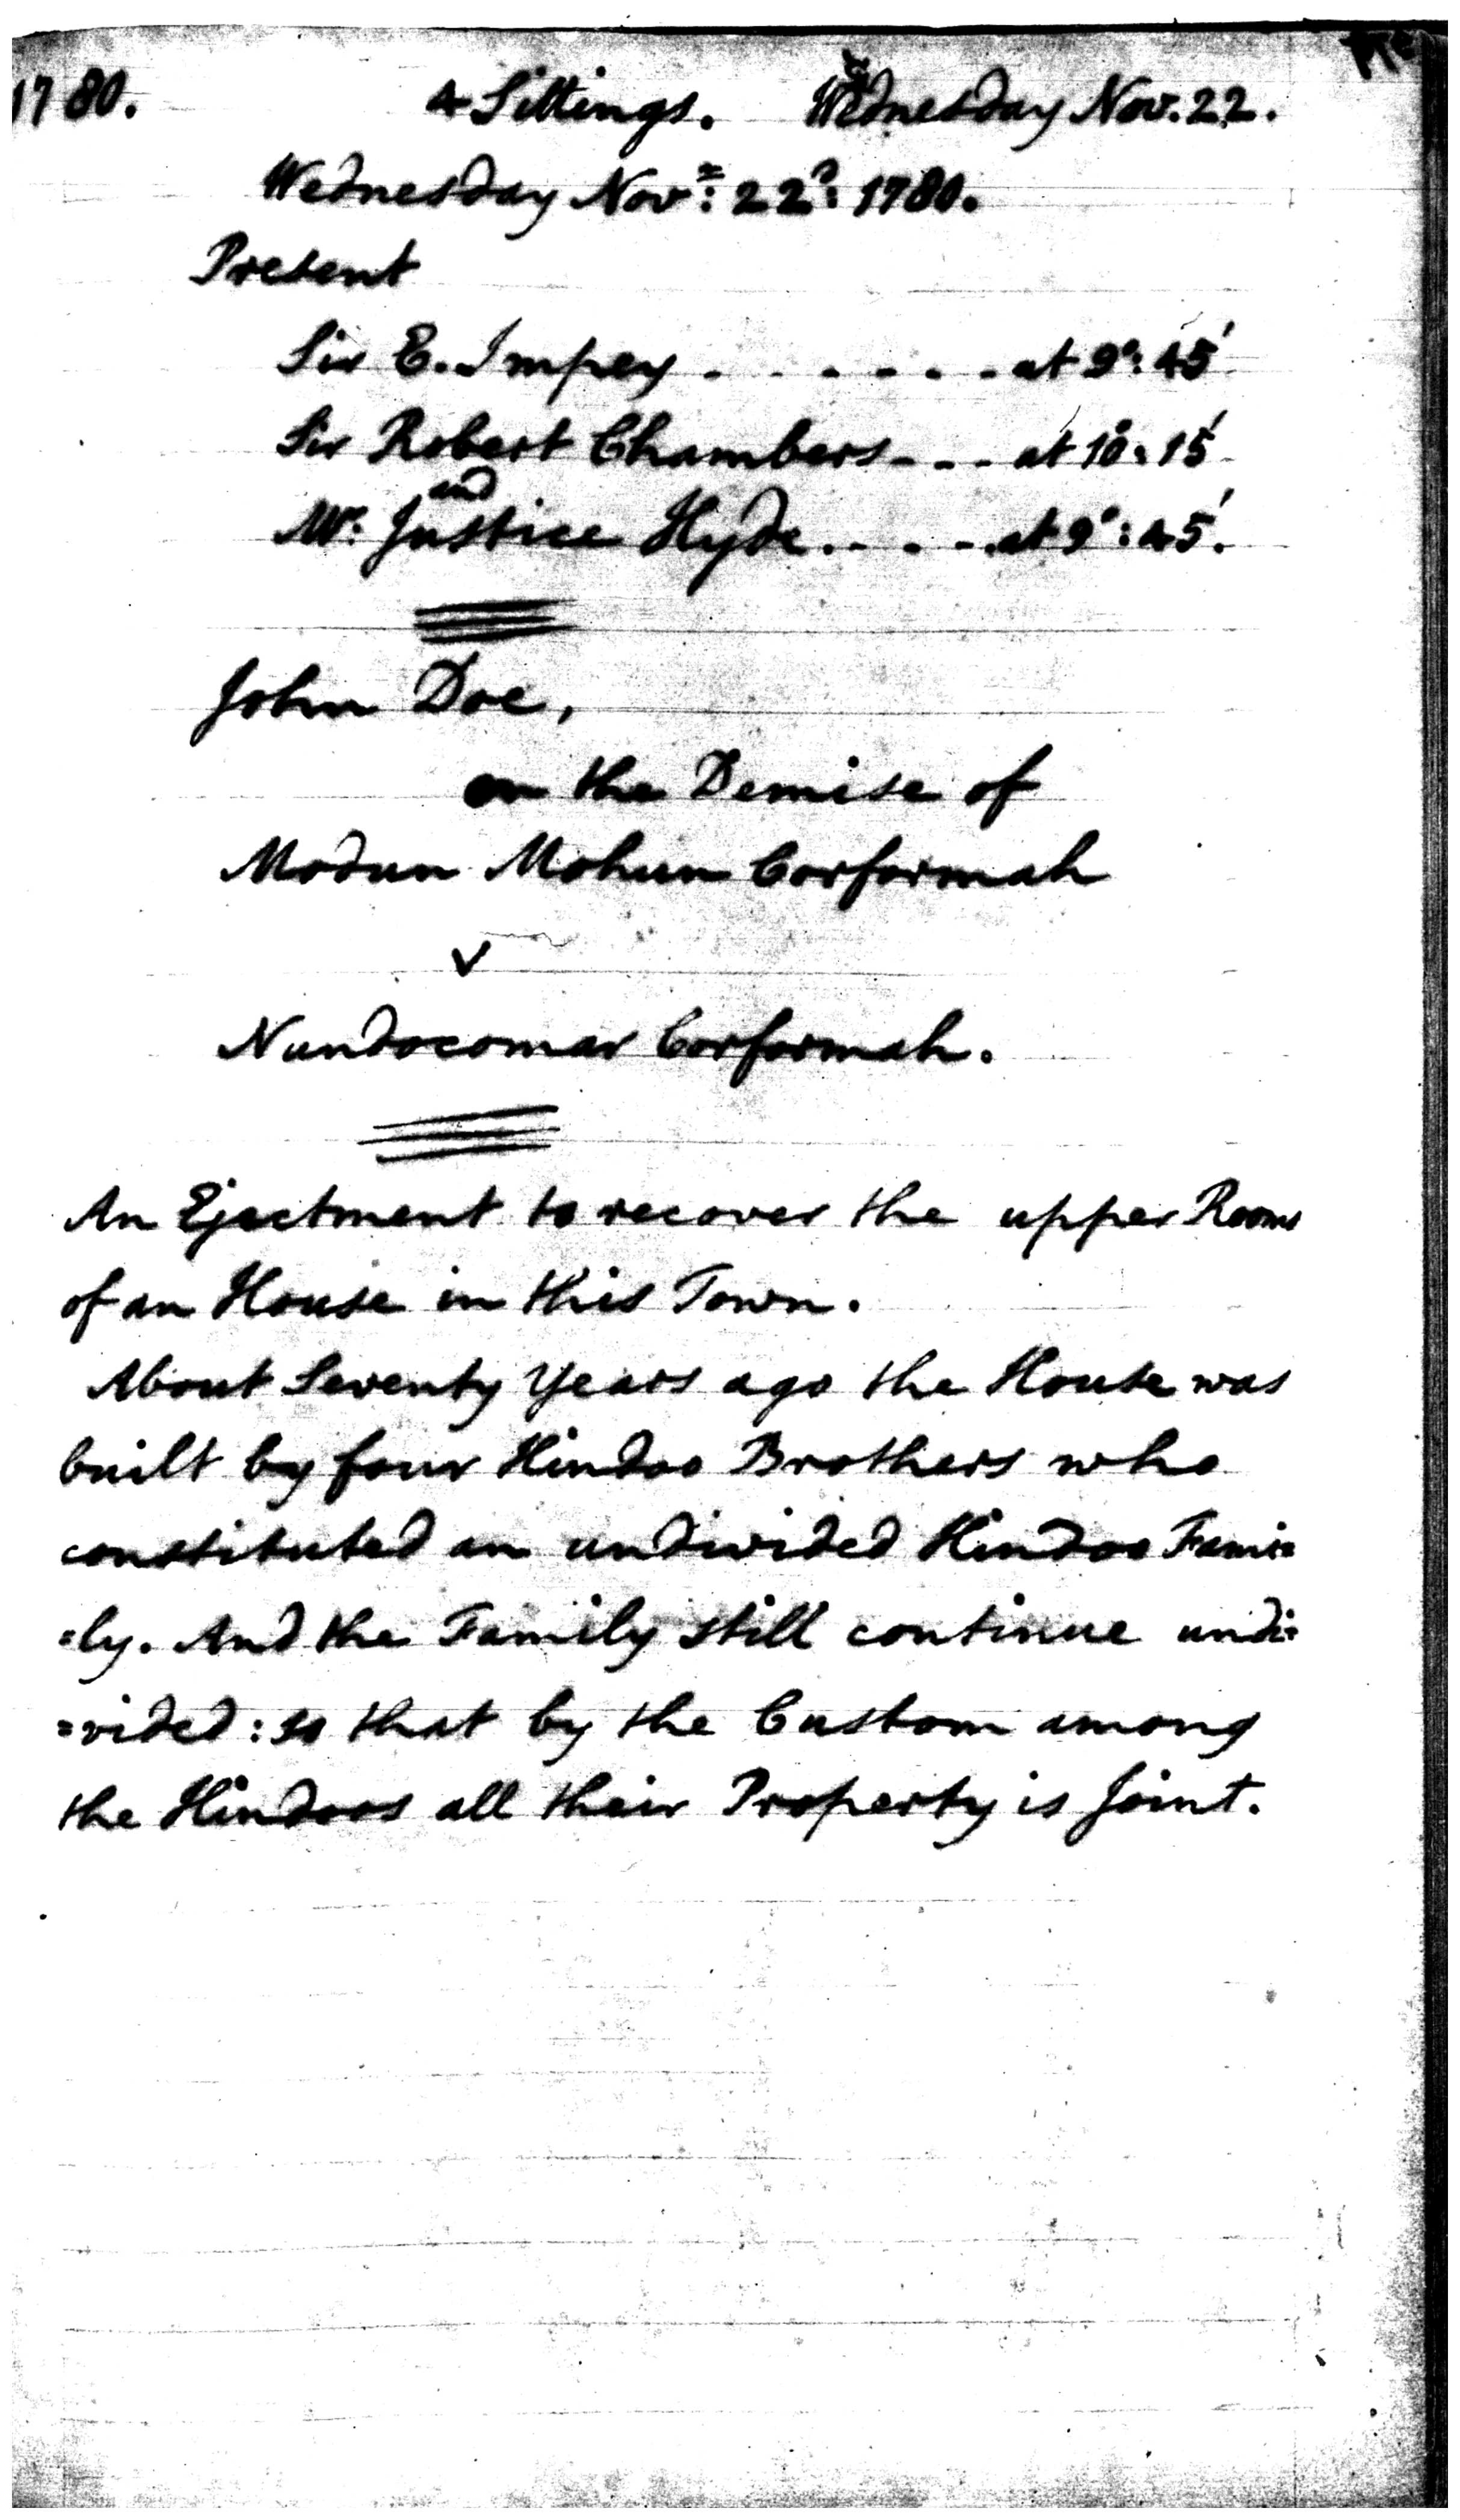 1780. 4 Sittings. Wednesday Nov. 22.
Wednesday Novr: 22d: 1780.
Present
Sir E. Impey - - - - - - at 9°: 45'
Sir Robert Chambers - - - at 10°: 15'
and
Mr. Justice Hyde. - - - - at 9°: 45'.
John Doe,
on the Demise of
Modun Mohun Corformah
v
Nundocomar Corformah.
An Ejectment to recover the upper Rooms
of an House in this Town.
About Seventy Years ago the House was
built by four Hindoo Brothers who
constituted an undivided Hindoo Fami=
=ly. And the Family still continue undi=
=vided: so that by the Custom among
the Hindoos all their Property is Joint.